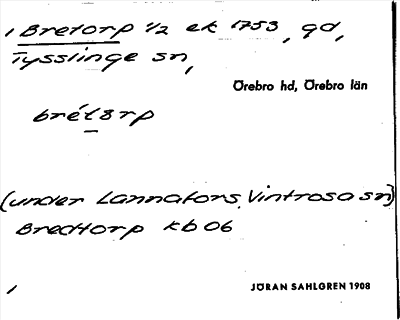 1 Bretorp 1/2 ek 1753, gd,
Tysslinge sn,
Örebro hd, Örebro län
brétårp
(under Lannafors, Vintrosa sn)
Bredtorp kb 06
JÖRAN SAHLGREN 1908